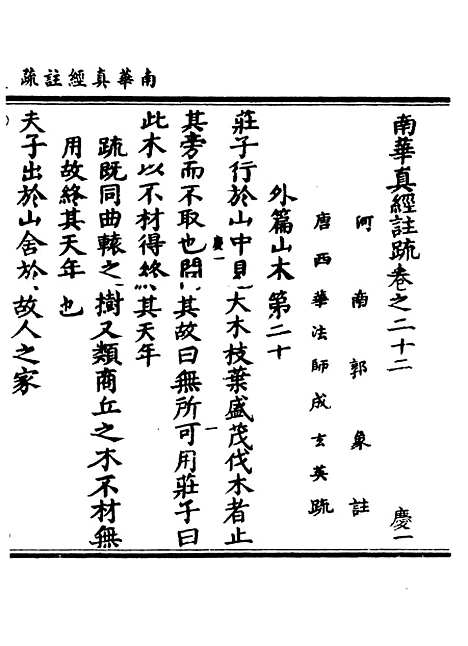 南華真經註疏
南華真經註疏卷之二十二 慶一
河南郭象註
唐西華法師成玄英疏
外篇山木第二十
莊子行於山中見大木枝葉盛茂伐木者止
其旁而不取也問其故曰無所可用莊子曰
慶一
此木以不材得終其天年
疏既同曲轅之樹又類商丘之木不材無
用故終其天年也
夫子出於山舍於故人之家